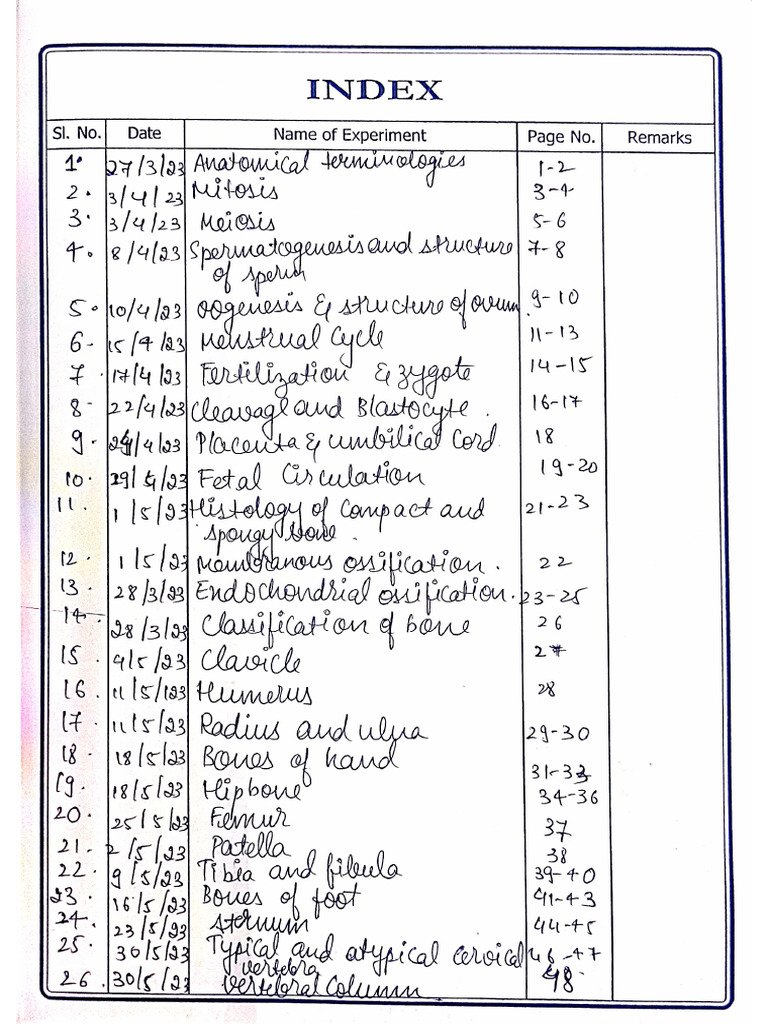 INDEX
Sl. No. Date Name of Experiment Page No. Remarks
1. 27/3/23 Anatomical terminologies 1-2
2. 3/4/23 Mitosis 3-4
3. 3/4/23 Meiosis 5-6
4. 8/4/23 Spermatogenesis and structure 7-8
of sperm
5. 10/4/23 oogenesis & structure of ovum. 9-10
6- 15/4/23 Menstrual Cycle 11-13
7. 17/4/23 Fertilization & zygote 14-15
8- 22/4/23 Cleavage and Blastocyte. 16-17
9. 24/4/23 Placenta & umbilical Cord 18
10. 29/4/23 Fetal Circulation 19-20
11. 1/5/23 Histology of compact and 21-23
spongy bone.
12. 1/5/23 Membranous ossification. 22
13. 28/3/23 Endochondrial ossification. 23-25
14. 28/3/23 Classification of bone 26
15. 9/5/23 Clavicle 27
16. 11/5/23 Humerus 28
17. 11/5/23 Radius and ulna 29-30
18. 18/5/23 Bones of hand 31-33
19. 18/5/23 Hipbone 34-36
20. 25/5/23 Femur 37
21. 2/5/23 Patella 38
22. 9/5/23 Tibia and fibula 39-40
23. 16/5/23 Bones of foot 41-43
24. 23/5/23 sternum 44-45
25. 30/5/23 Typical and atypical cervical 46-47
vertebra
26. 30/5/23 vertebral column 48.